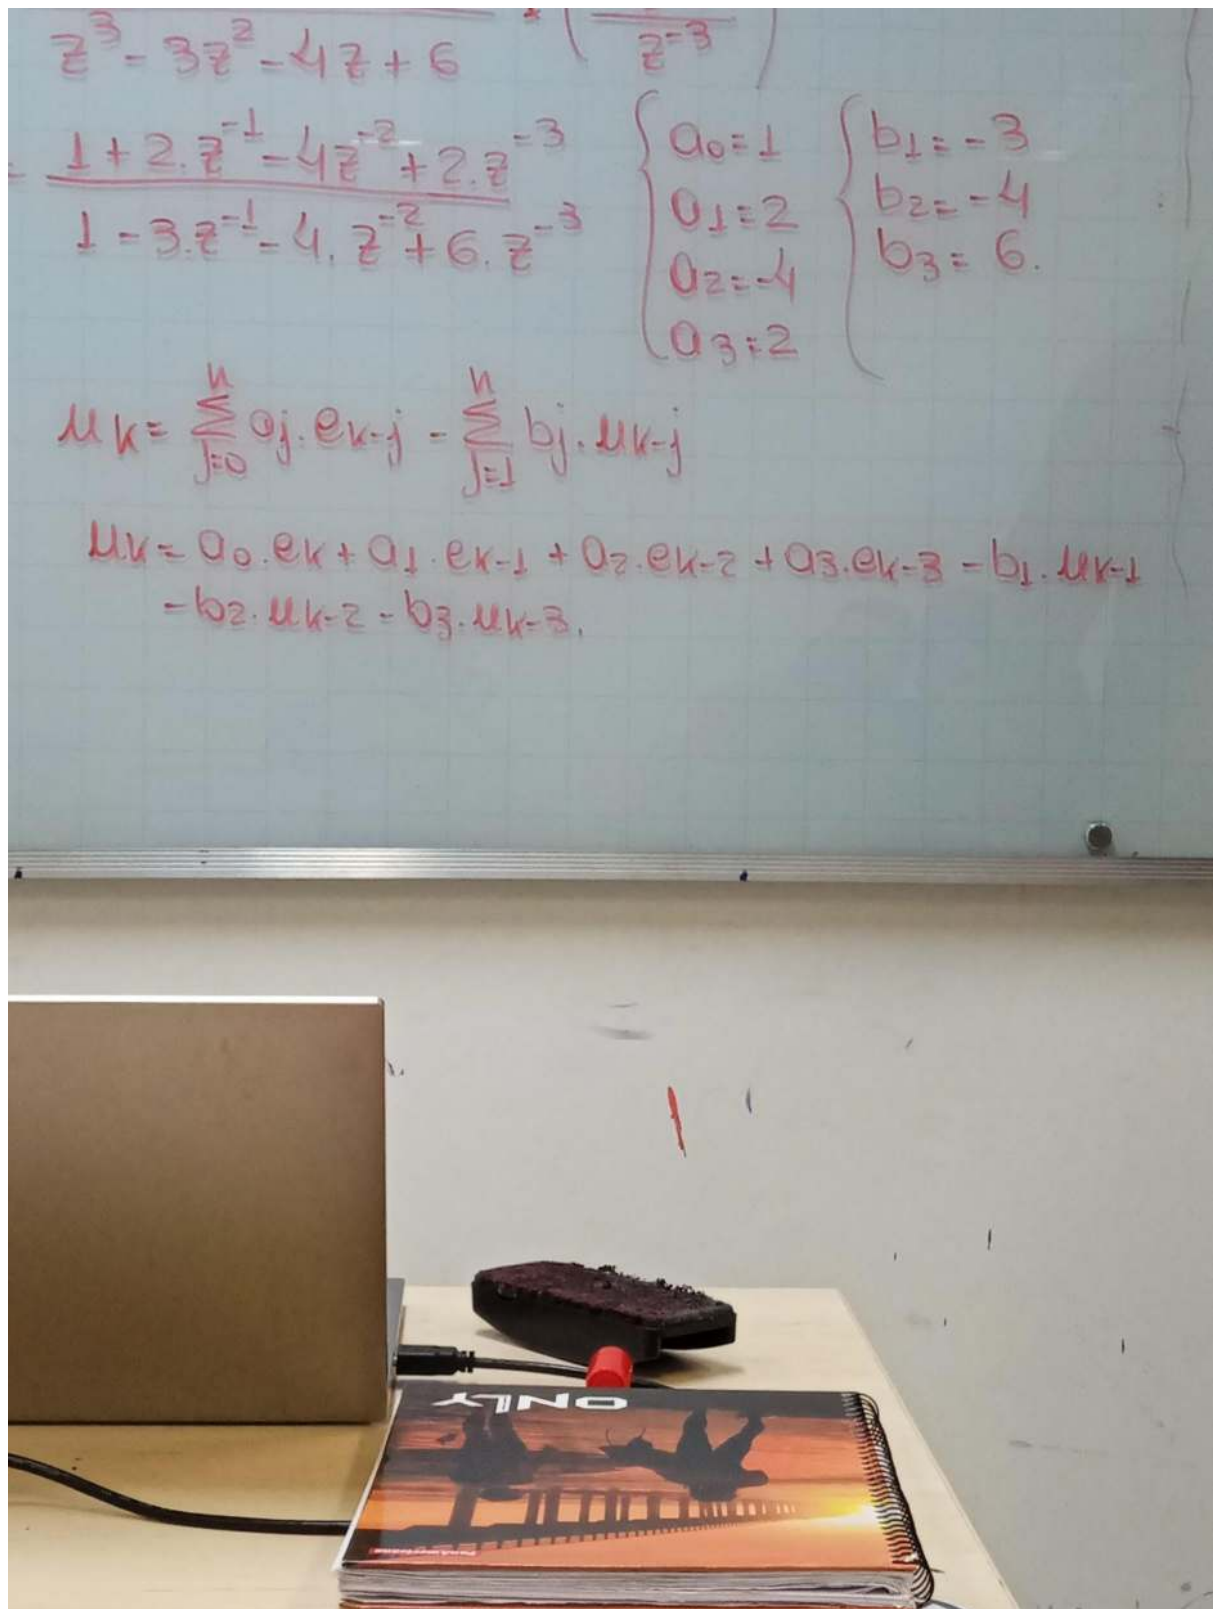 z³ - 3z² - 4z + 6 * ( / z⁻³ )
= (1 + 2.z⁻¹ - 4z⁻² + 2.z⁻³) / (1 - 3.z⁻¹ - 4.z⁻² + 6.z⁻³)
{ a₀ = 1
a₁ = 2
a₂ = -4
a₃ = 2
{ b₁ = -3
b₂ = -4
b₃ = 6.
uₖ = Σⁿⱼ₌₀ aⱼ.eₖ₋ⱼ - Σⁿⱼ₌₁ bⱼ.uₖ₋ⱼ
uₖ = a₀.eₖ + a₁.eₖ₋₁ + a₂.eₖ₋₂ + a₃.eₖ₋₃ - b₁.uₖ₋₁
- b₂.uₖ₋₂ - b₃.uₖ₋₃.
ONLY